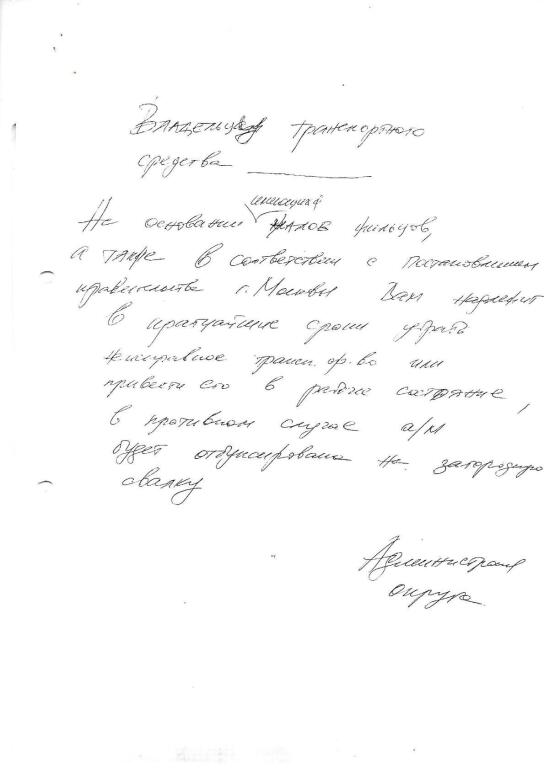 Владельцу транспортного
средства
инициации
На основании жалоб жильцов,
а также в соответствии с Постановлением
правительства г. Москвы Вам надлежит
в кратчайшие сроки убрать
неисправное трансп. ср-во или
привести его в рабочее состояние,
в противном случае а/м
будет отбуксирована на загородную
свалку
Администрация
округа.